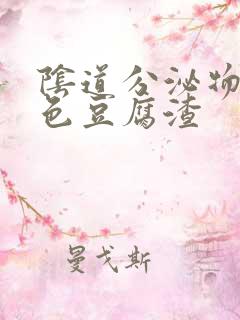 陰道分泌物
色豆腐渣
曼戈斯